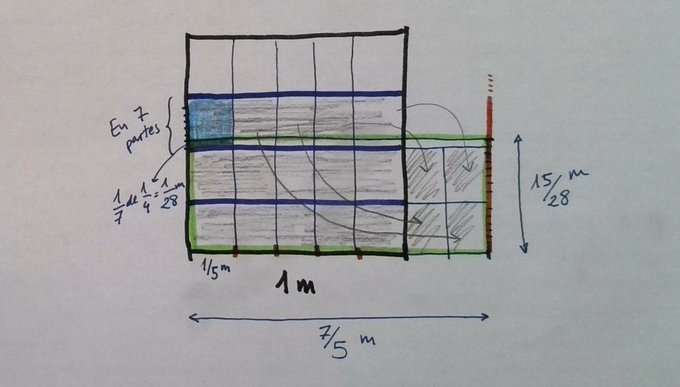 En 7
partes
1/7 de 1/4 = 1/28 m
15/28 m
1/5 m
1 m
7/5 m